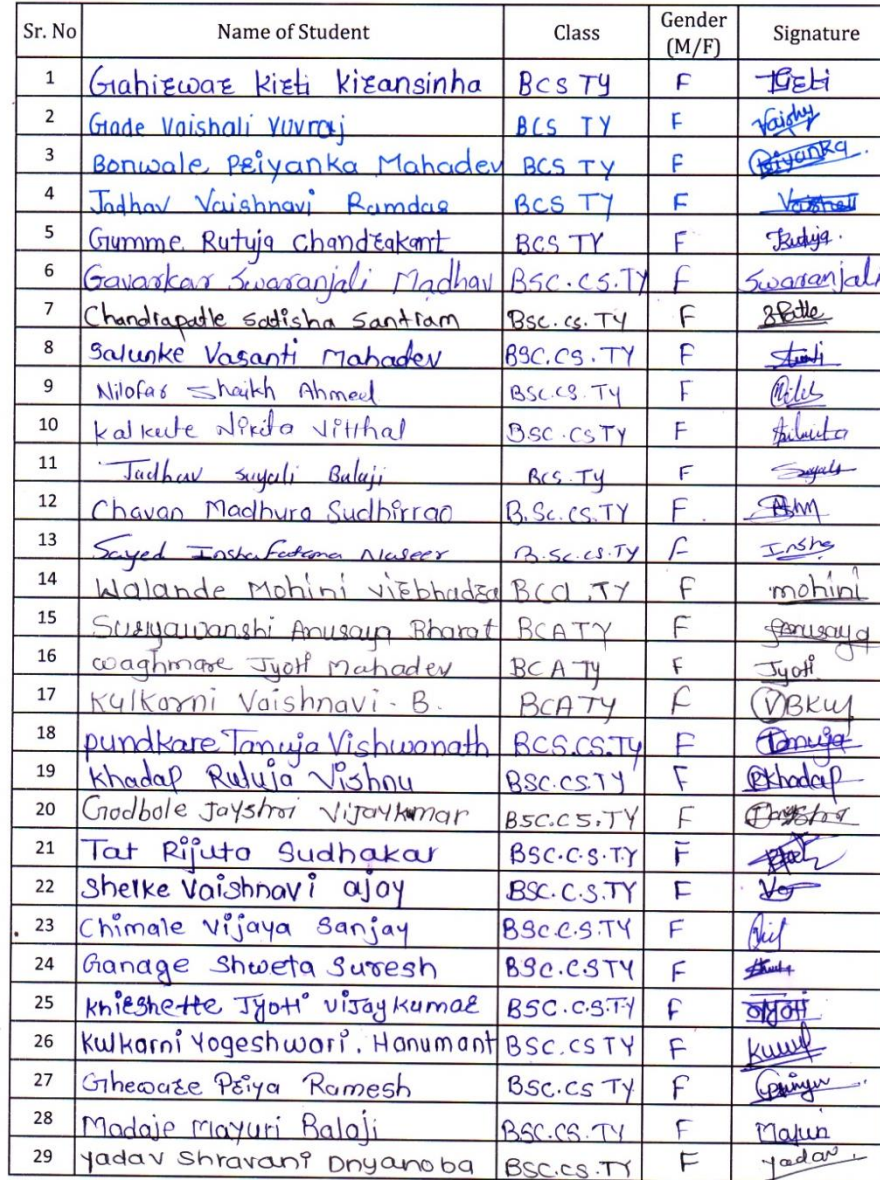 Sr. No Name of Student Class Gender (M/F) Signature
1 Gahirwar Kirti Kiransinha BCS TY F Kirti
2 Gade Vaishali Yuvraj BCS TY F Vaishu
3 Bonwale Priyanka Mahadev BCS TY F Priyanka.
4 Jadhav Vaishnavi Ramdas BCS TY F
5 Gumme Rutuja Chandrakant BCS TY F Rutuja.
6 Gavarkar Swaranjali Madhav BSC.CS.TY F Swaranjali
7 Chandrapatle Satisha Santram Bsc.cs.TY F SPatle
8 Salunke Vasanti Mahadev BSC.CS.TY F
9 Nilofar Shaikh Ahmed BSC.CS.TY F
10 Kalkute Nikita Vitthal BSC.CSTY F
11 Jadhav Suyali Balaji BCS.TY F
12 Chavan Madhura Sudhirrao B.Sc.CS.TY F.
13 Sayed Insha Fatema Naseer B.SC.CS.TY F Insha
14 Walande Mohini Virbhadra BCA.TY F mohini
15 Suryawanshi Anusaya Bharat BCATY F Anusaya
16 waghmare Jyoti Mahadev BCA TY F Jyoti
17 Kulkarni Vaishnavi. B. BCATY F VBKul
18 pundkare Tanuja Vishwanath BCS.CS.TY F Tanuja
19 Khadap Rutuja Vishnu BSC.CS.TY F RKhadap
20 Godbole Jayshri Vijaykumar BSC.CS.TY F
21 Tat Rijuta Sudhakar BSC.C.S.TY F
22 Shelke Vaishnavi ajay BSC.C.S.TY F
23 Chimale Vijaya Sanjay BSC.C.S.TY F
24 Ganage Shweta Suresh BSC.C.STY F
25 Khirshette Jyoti Vijaykumar BSC.C.S.TY F
26 Kulkarni Yogeshwari. Hanumant BSC.CS TY F
27 Gheware Priya Ramesh BSC.CS TY F
28 Madaje Mayuri Balaji BSC.CS.TY F Mayuri
29 yadav Shravani Dnyanoba BSC.CS.TY F yadav.